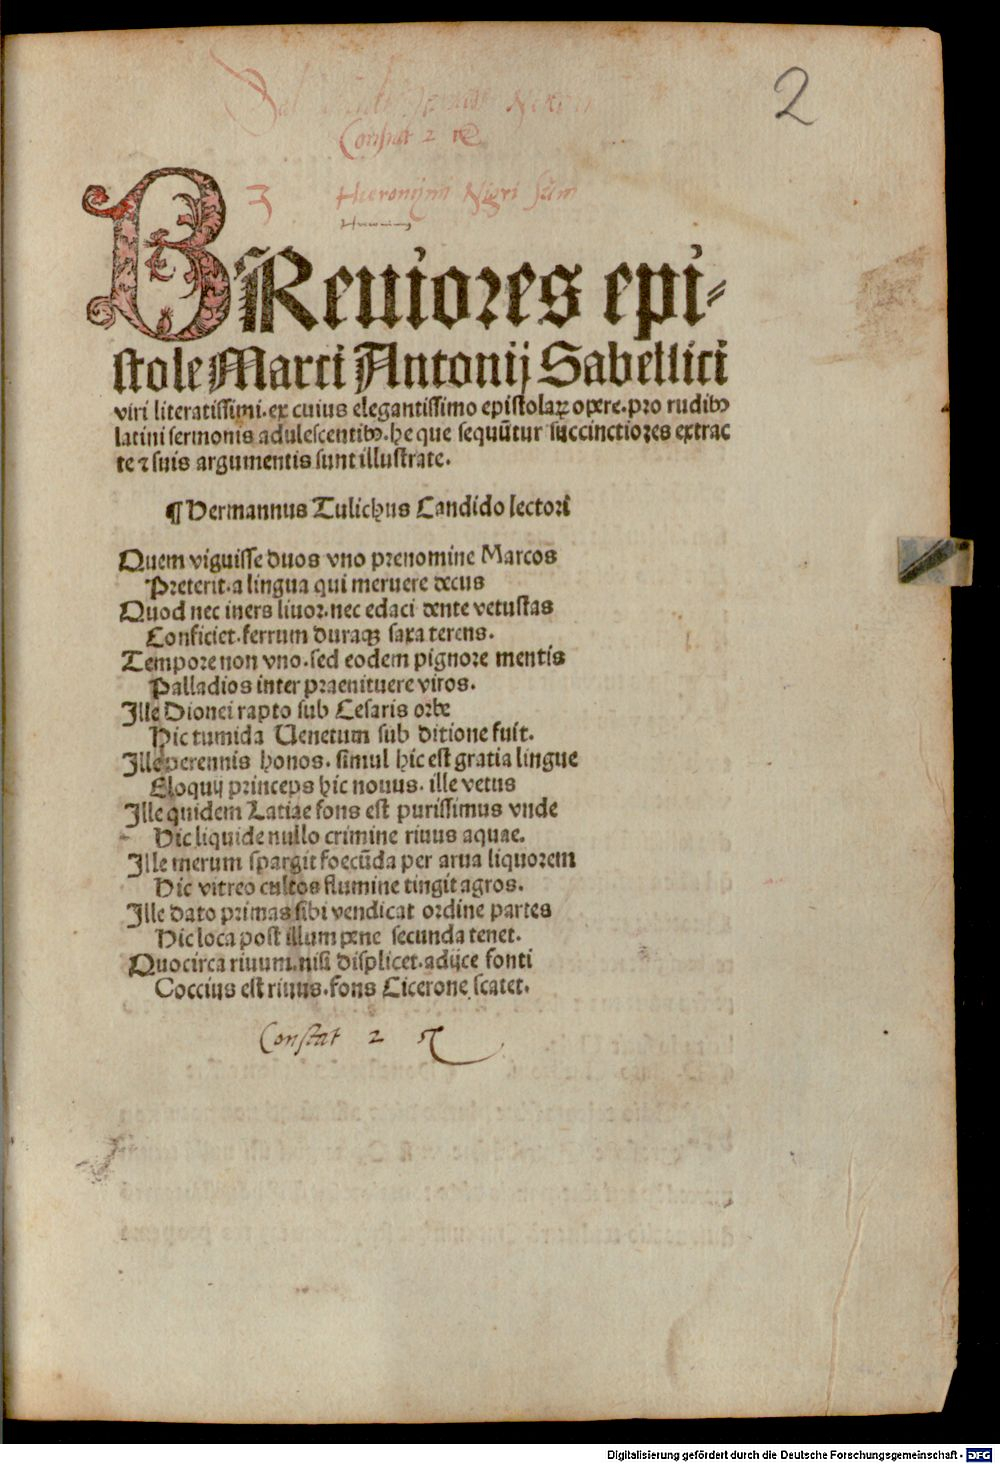 2
Constat 2
3 Hieronymi Nigri sum
BReuiores epi⸗
stole Marci Antonij Sabellici
viri literatissimi. ex cuius elegantissimo epistolaꝝ opere. pro rudibꝰ
latini sermonis adulescentibꝰ. he que sequūtur succinctiores extrac
te ⁊ suis argumentis sunt illustrate.
¶ Hermannus Tulichus Candido lectori
Quem viguisse duos vno prenomine Marcos
Preterit. a lingua qui meruere decus
Quod nec iners liuor. nec edaci dente vetustas
Conficiet. ferrum duraqꝫ saxa terens.
Tempore non vno. sed eodem pignore mentis
Palladios inter praenituere viros.
Ille Dionei rapto sub Cesaris orbe
Hic tumida Uenetum sub ditione fuit.
Ille perennis honos. simul hic est gratia lingue
Eloquij princeps hic nouus. ille vetus
Ille quidem Latiae fons est purissimus vnde
Hic liquide nullo crimine riuus aquae.
Ille merum spargit foecūda per arua liquorem
Hic vitreo cultos flumine tingit agros.
Ille dato primas sibi vendicat ordine partes
Hic loca post illum pene secunda tenet.
Quocirca riuum. nisi displicet. adijce fonti
Coccius est riuus. fons Cicerone scatet.
Constat 2
Digitalisierung gefördert durch die Deutsche Forschungsgemeinschaft - DFG